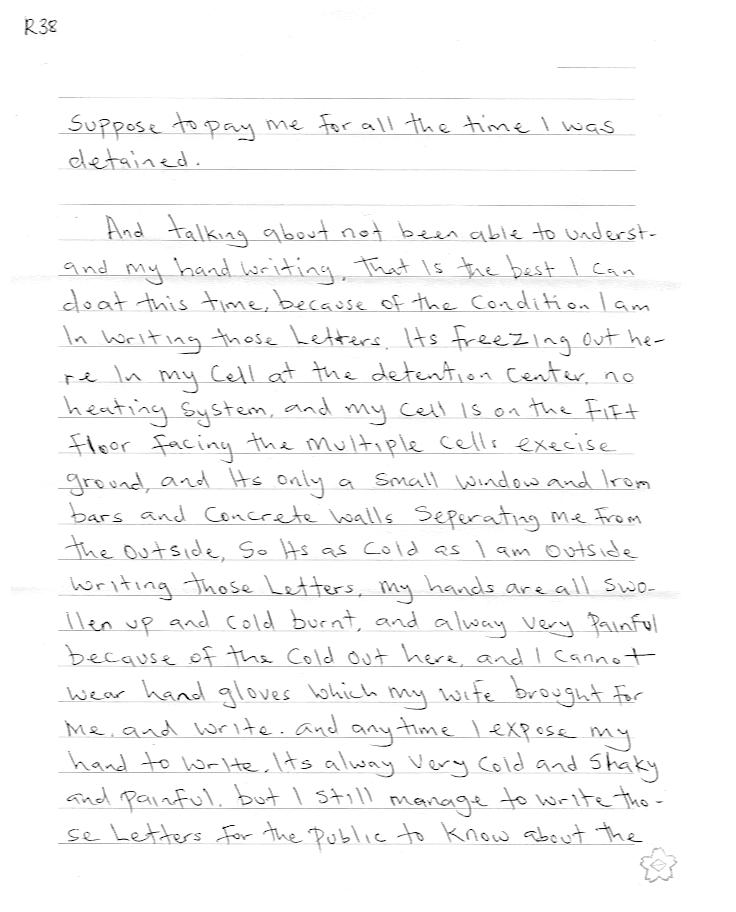 R38
Suppose to pay me for all the time I was
detained.
And talking about not been able to underst-
and my hand writing. That Is the best I can
do at this time, because of the Condition I am
In writing those Letters. Its freezing out he-
re In my Cell at the detention Center, no
heating System, and my Cell Is on the FIFt
floor facing the multiple Cells execise
ground, and Its only a Small window and Irom
bars and Concrete walls Seperating me from
the outside, So Its as Cold as I am outside
writing those Letters, my hands are all swo-
llen up and Cold burnt, and alway very Painful
because of the Cold out here, and I Cannot
wear hand gloves which my wife brought for
me, and write. and anytime I expose my
hand to write, Its alway very Cold and Shaky
and Painful. but I Still manage to write tho-
se Letters for the Public to Know about the